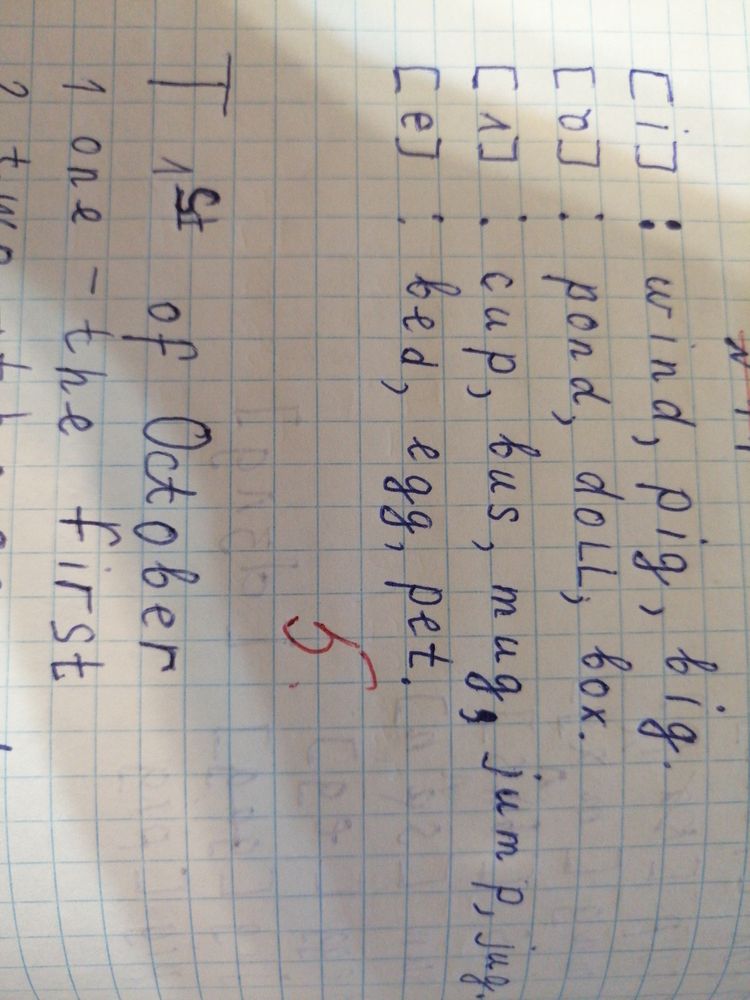 [i] : wind, pig, big.
[ɒ] : pond, doll, box.
[ʌ] : cup, bus, mug, jump, jug.
[e] : bed, egg, pet.
5
T 1st of October
1 one - the first
2 two - the